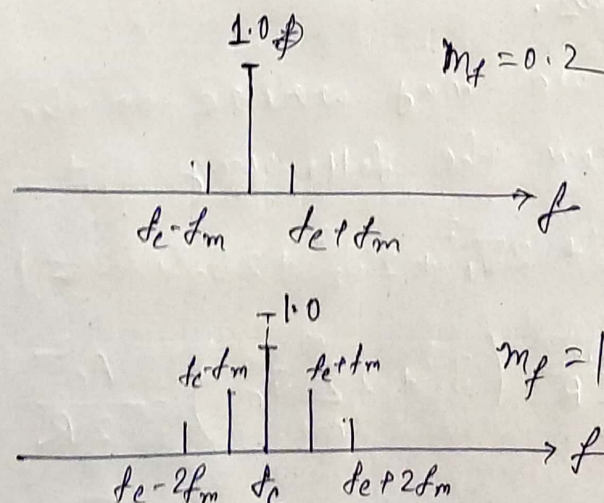 1.0
m_f = 0.2
f_c - f_m f_c + f_m f
1.0
f_c - f_m f_c + f_m m_f = 1
f_c - 2f_m f_c f_c + 2f_m f